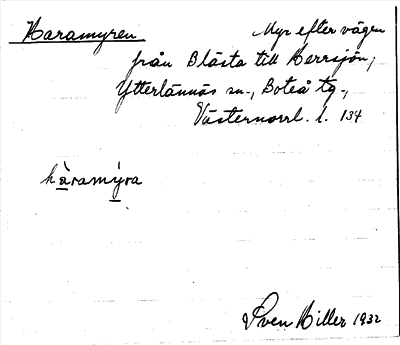 Haramyren Myr efter vägen
från Blästa till Herrsjön,
Ytterlännäs sn., Boteå tg.,
Västernorrl. l. 134
hàramýra
Sven Hiller 1932